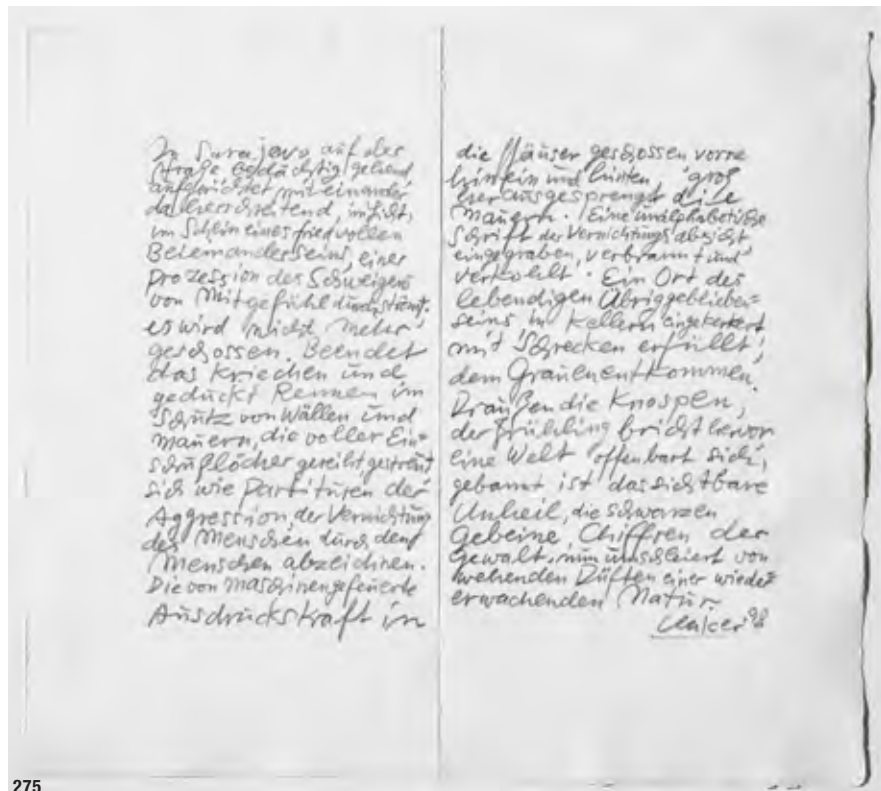 In Sarajevo auf der
Straße bedächtig gehend
aufgerichtet miteinander
daherschreitend, in sich,
im Schein eines friedvollen
Beieinanderseins, einer
Prozession des Schweigens
von Mitgefühl durchströmt.
es wird nicht mehr
geschossen. Beendet
das Kriechen und
geduckt Rennen im
Schutz von Wällen und
Mauern, die voller Ein=
schußlöcher gereiht gestreut
sich wie Partituren der
Aggression, der Vernichtung
des Menschen durch den
Menschen abzeichnen.
Die von Maschinen gefeuerte
Ausdruckskraft in
die Häuser geschossen vorne
hinein und hinten groß
herausgesprengt die
Mauern. Eine unalphabetische
Schrift der Vernichtungsabsicht,
eingegraben, verbrannt und
verkohlt. Ein Ort des
lebendigen Übriggeblieben=
seins in Kellern eingekerkert
mit Schrecken erfüllt,
dem Grauen entkommen,
Draußen die Knospen,
der Frühling bricht hervor
eine Welt offenbart sich,
gebannt ist das sichtbare
Unheil, die schwarzen
Gebeine, Chiffren der
Gewalt, nun umschleiert von
wehenden Düften einer wieder
erwachenden Natur.
Uecker 98
275